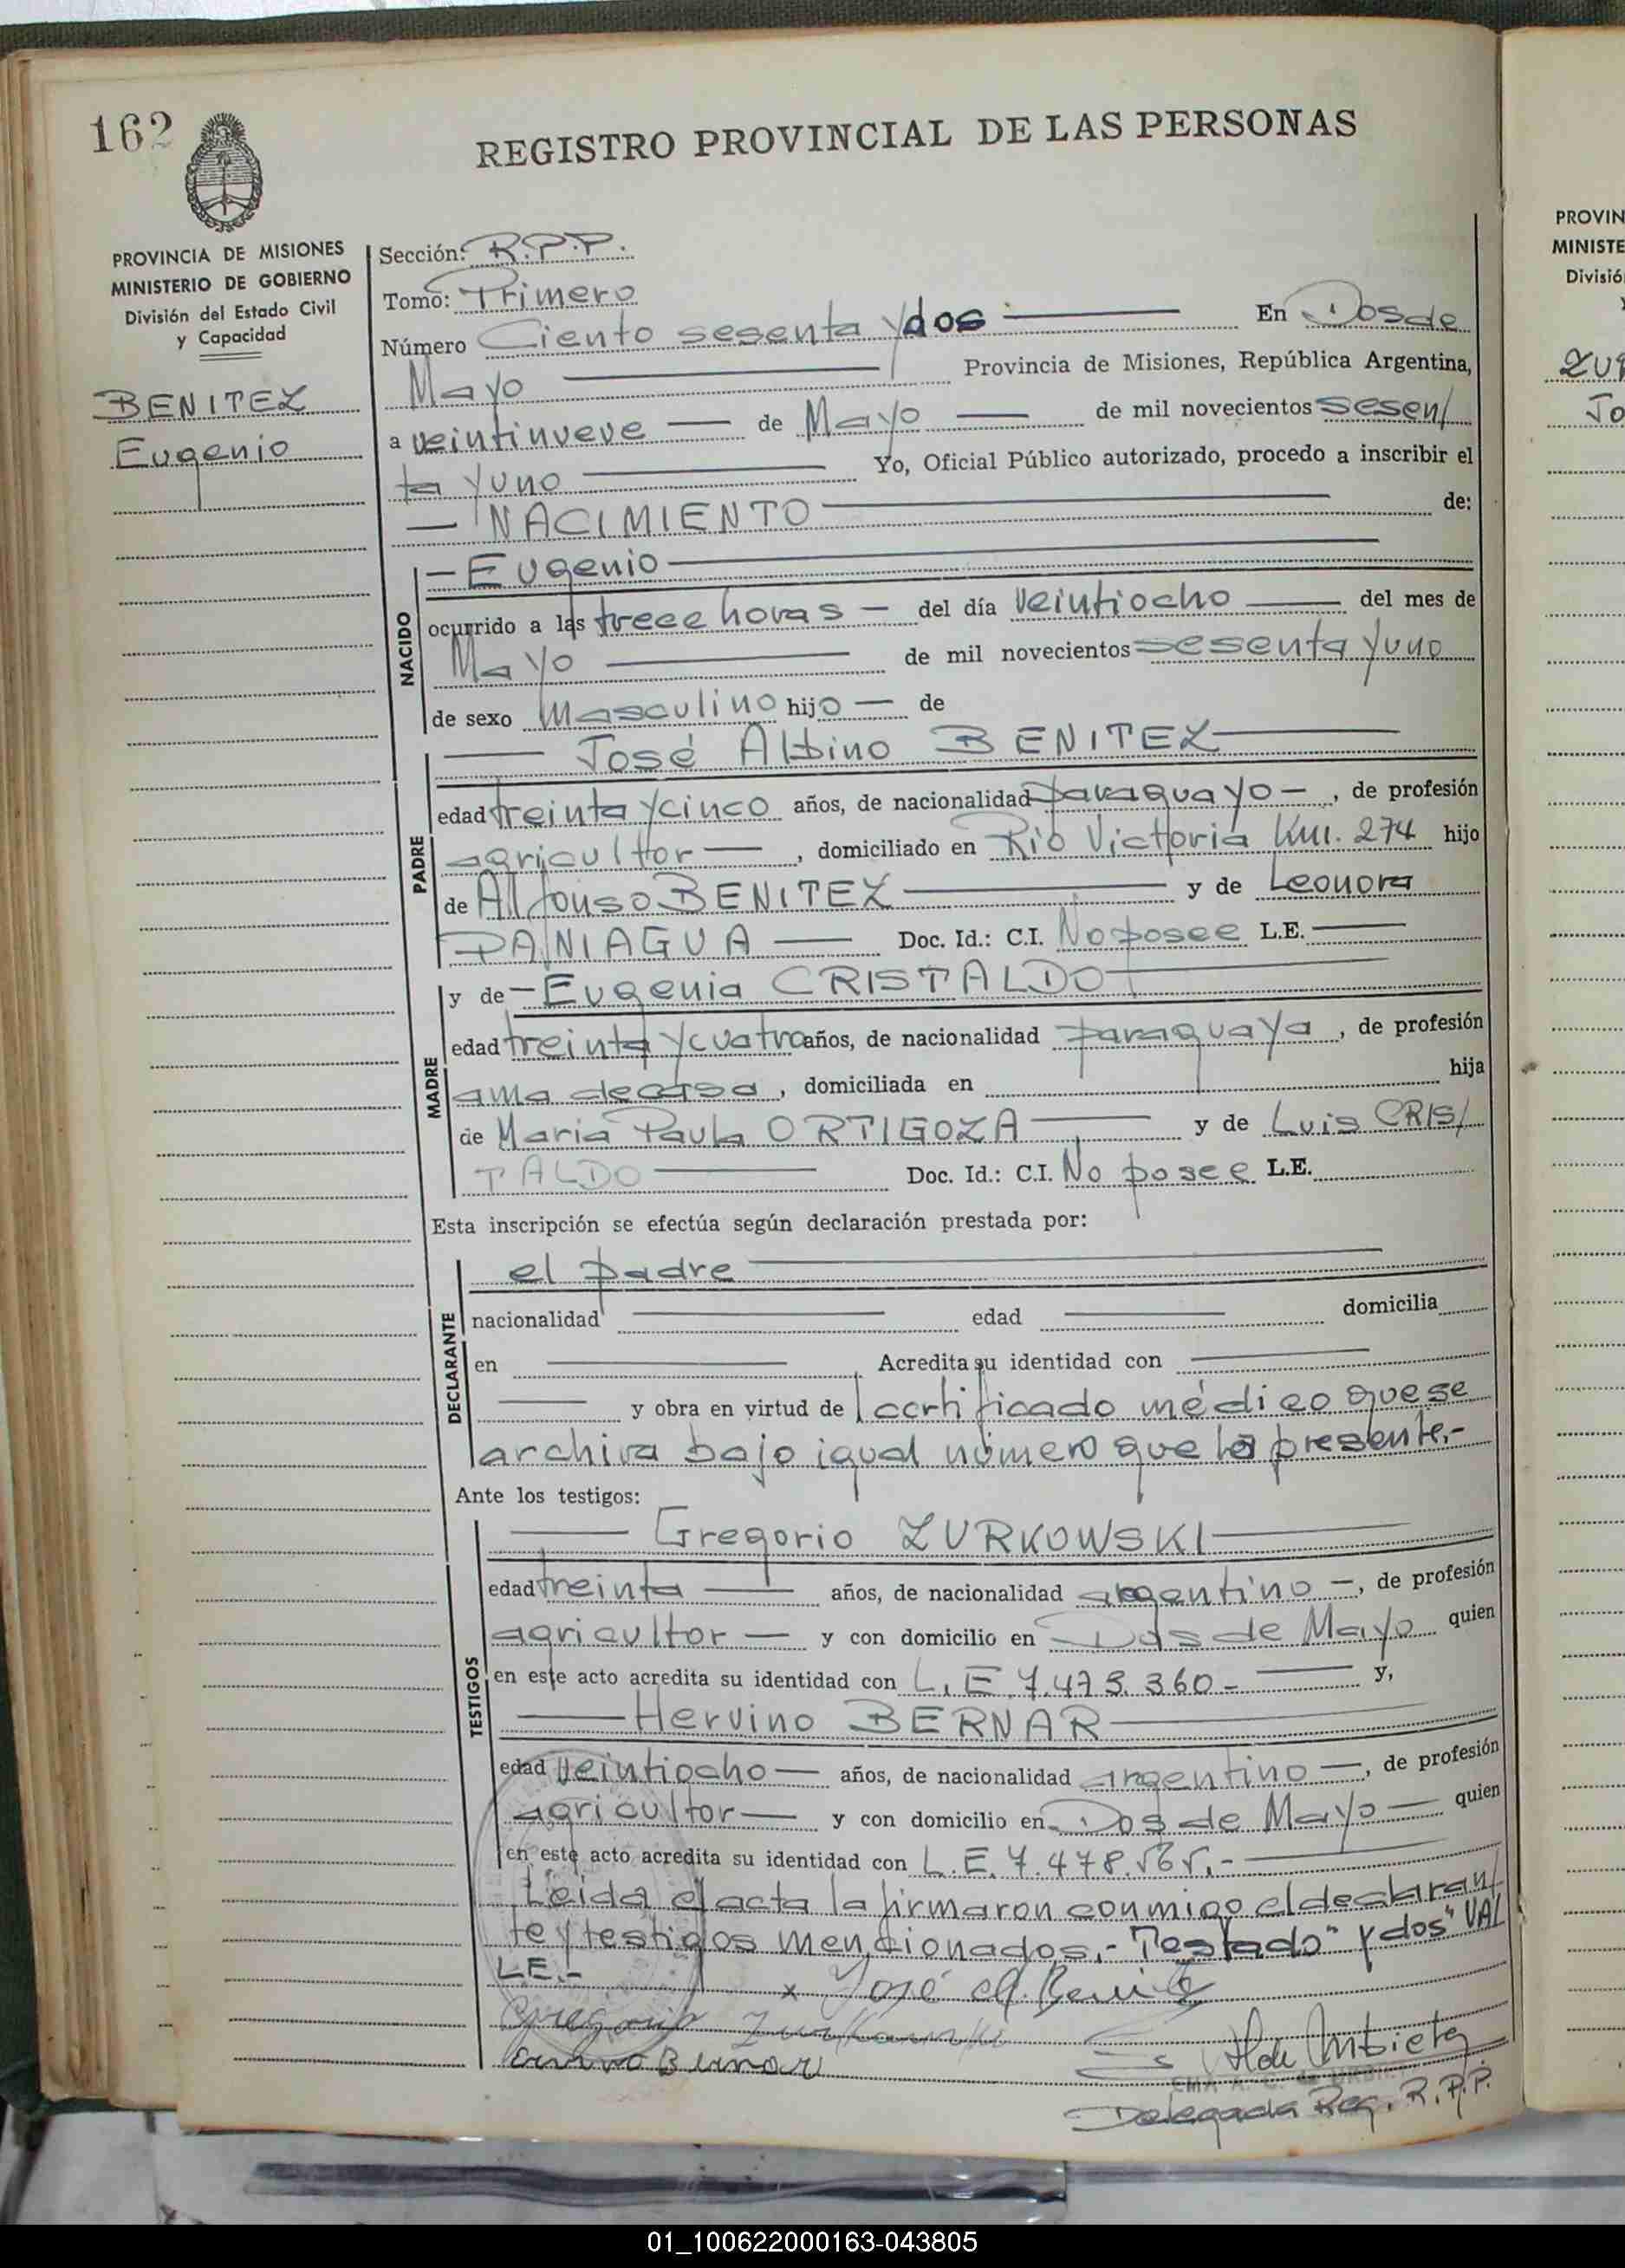 162
REGISTRO PROVINCIAL DE LAS PERSONAS
PROVINCIA DE MISIONES
MINISTERIO DE GOBIERNO
División del Estado Civil
y Capacidad
BENITEZ
Eugenio
Sección: R.P.P.
Tomo: Primero
Número Ciento sesenta y dos En Dos de
Mayo Provincia de Misiones, República Argentina,
a veintinueve de Mayo de mil novecientos sesen/
ta y uno Yo, Oficial Público autorizado, procedo a inscribir el
NACIMIENTO de:
NACIDO
Eugenio
ocurrido a las trece horas del día veintiocho del mes de
Mayo de mil novecientos sesenta y uno
de sexo Masculino hijo de
PADRE
José Albino BENITEZ
edad treinta y cinco años, de nacionalidad paraguayo, de profesión
agricultor, domiciliado en Rio Victoria Km. 274 hijo
de Alfonso BENITEZ y de Leonora
PANIAGUA Doc. Id.: C.I. No posee L.E.
MADRE
y de Eugenia CRISTALDO
edad treinta y cuatro años, de nacionalidad paraguaya, de profesión
ama de casa, domiciliada en hija
de Maria Paula ORTIGOZA y de Luis CRIS/
TALDO Doc. Id.: C.I. No posee L.E.
Esta inscripción se efectúa según declaración prestada por:
DECLARANTE
el padre
nacionalidad edad domicilia
en Acredita su identidad con
y obra en virtud de certificado médico que se
archiva bajo igual número que la presente.-
Ante los testigos:
TESTIGOS
Gregorio ZURKOWSKI
edad treinta años, de nacionalidad argentino, de profesión
agricultor y con domicilio en Dos de Mayo quien
en este acto acredita su identidad con L.E. 7.475.360- y,
Hervino BERNAR
edad veintiocho años, de nacionalidad argentino, de profesión
agricultor y con domicilio en Dos de Mayo quien
en este acto acredita su identidad con L.E. 7.478.565.-
Leida el acta la firmaron conmigo el declaran/
te y testigos mencionados.- Testado "y dos" VAL
LE.-
x José A. Benitez
Gregorio Zurkowski
Bernar
Delegada Reg. R.P.P.
PROVIN
MINISTE
Divisió
ZUR
Jo
01_100622000163-043805